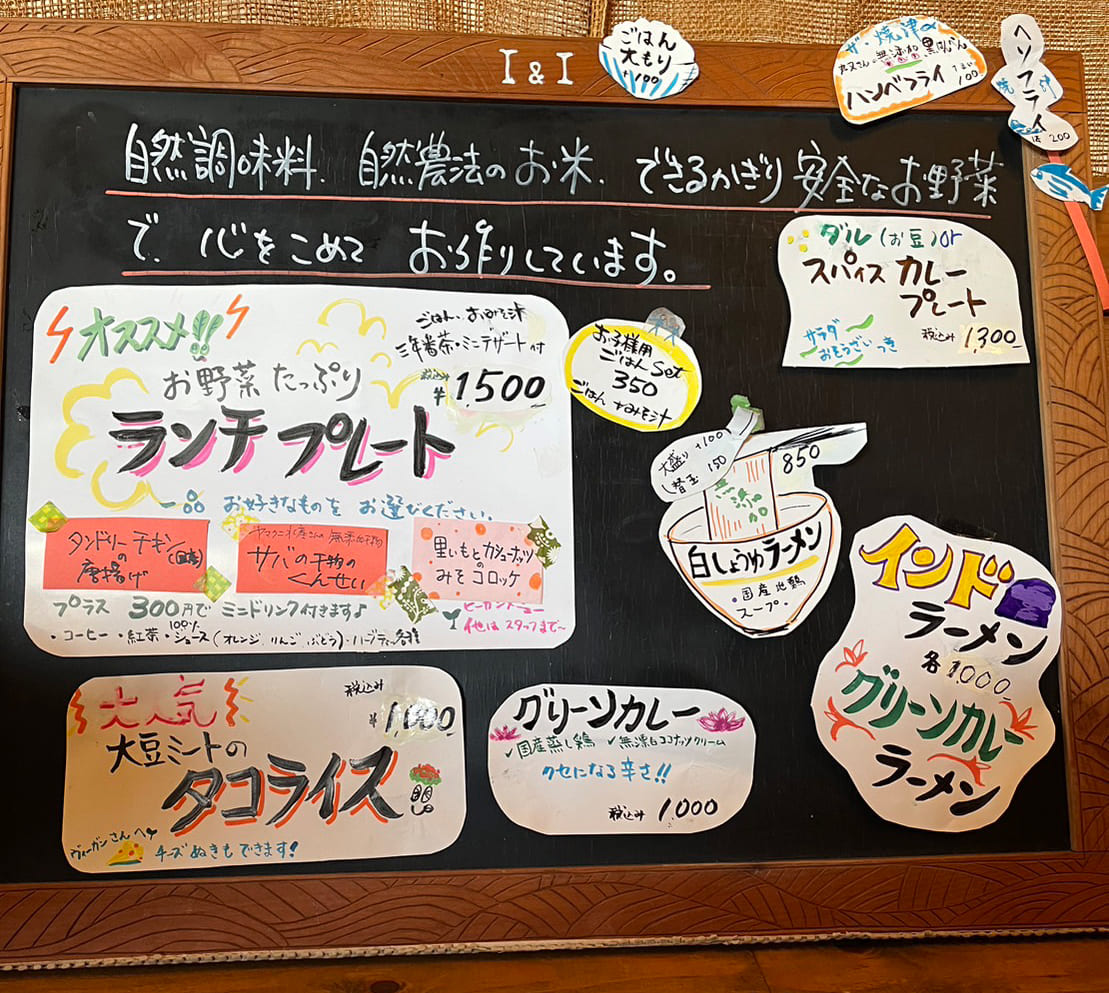 I & I
ごはん
大もり
+100
ザ・焼津
無添加黒はんぺん
ハンペフライ
100
ヘソフライ
焼津
200
自然調味料、自然農法のお米、できるかぎり安全なお野菜
で、心をこめて お作りしています。
ダル(お豆)or
スパイス カレー
プレート
税込み 1,300
サラダ
おそうざい つき
オススメ!!
ごはん・おみそ汁
三年番茶・ミニデザート付
お野菜 たっぷり
税込み
¥1,500
ランチ プレート
一品 お好きなものを お選びください。
タンドリーチキン
の
唐揚げ
ヤマクニ水産さんの 無添加干物
サバの干物の
くんせい
里いもとカシューナッツ
の
みそ コロッケ
プラス 300円で ミニドリンク付きます♪
・コーヒー ・紅茶 ・ジュース(オレンジ、りんご、ぶどう)・ハーブティー各種
100%
ビーガンメニュー
他は スタッフまで~
お子様用
ごはん Set
350
ごはん おみそ汁
大盛り +100
替玉 150
850
無添加
白しょうゆラーメン
・国産地鶏
スープ・
インド
ラーメン
各 1000
グリーンカレー
ラーメン
大人気
税込み
¥1,000
大豆ミートの
タコライス
ヴィーガンさんへ
チーズぬきもできます!
グリーンカレー
✓国産蒸し鶏 ✓無漂白ココナッツクリーム
クセになる辛さ!!
税込み 1,000